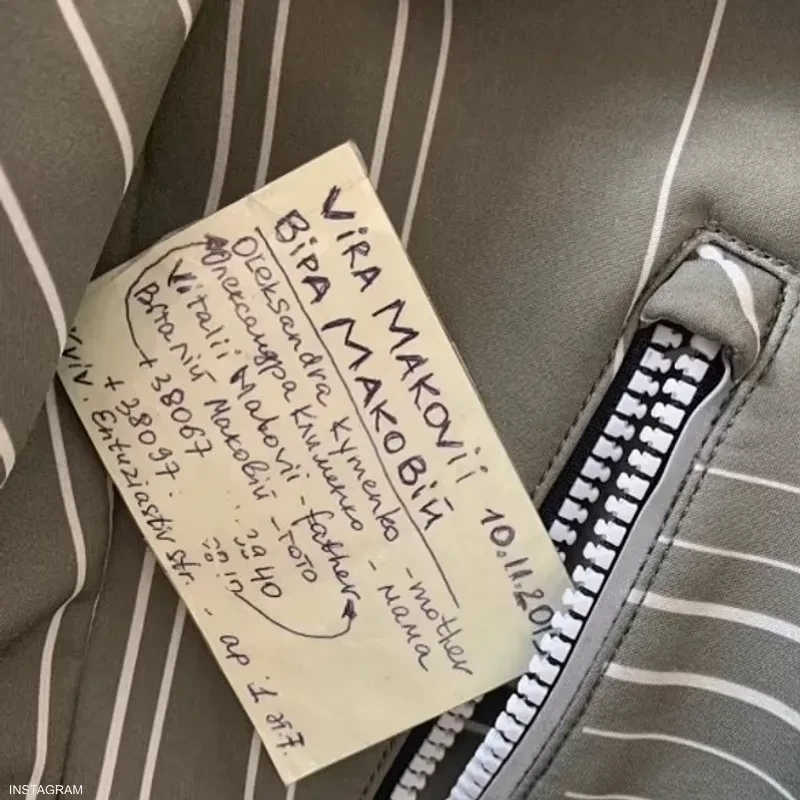 VIRA MAKOVII
ВІРА МАКОВІЙ
10.11.20
Oleksandra Kymenko - mother
Олександра Клименко - мама
Vitalii Makovii - father
Віталій Маковій - тото
+38067
+38097
Entuziastiv str. - ap.
INSTAGRAM